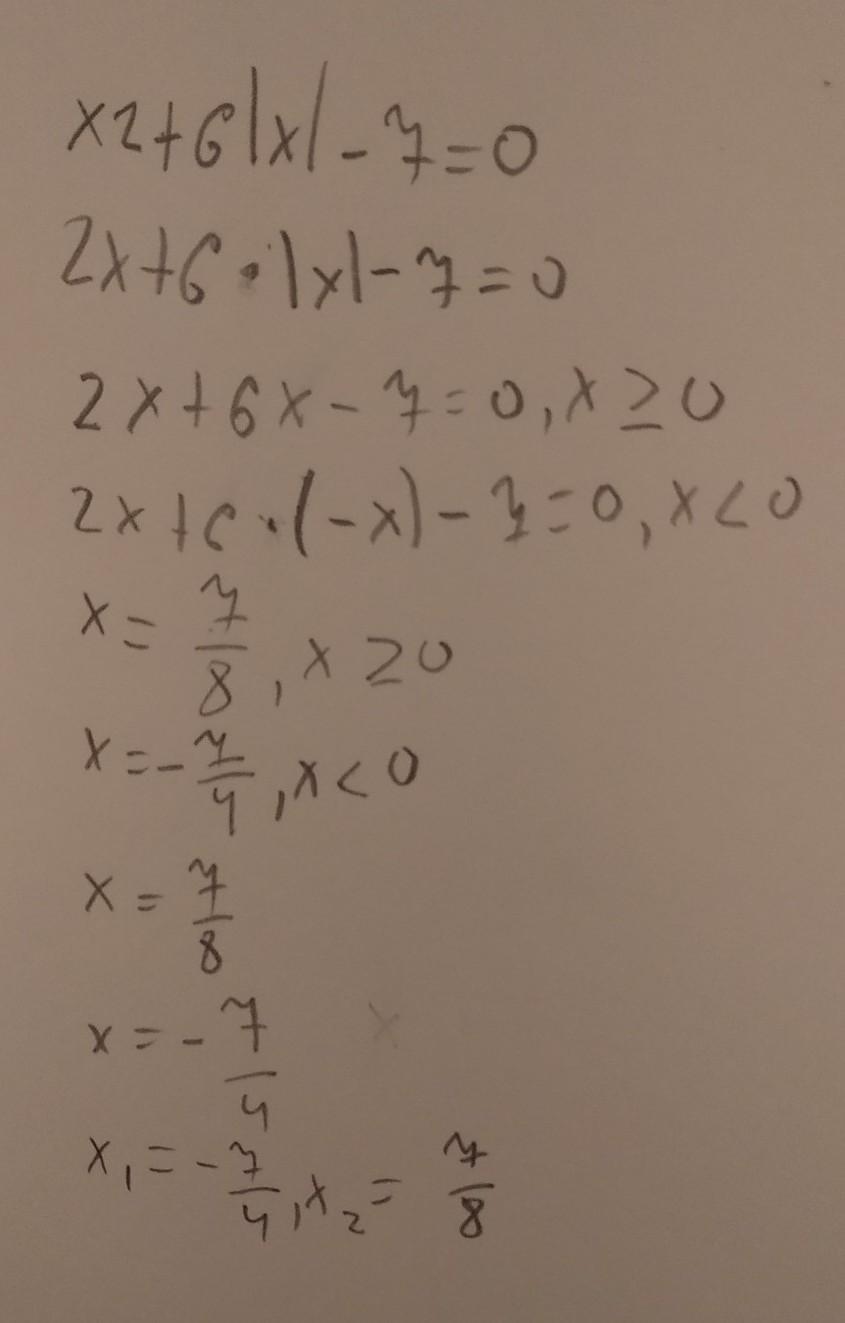 x2+6|x|-7=0
2x+6·|x|-7=0
2x+6x-7=0,x≥0
2x+6·(-x)-7=0,x<0
x=7/8,x≥0
x=-7/4,x<0
x=7/8
x=-7/4
x₁=-7/4,x₂=7/8